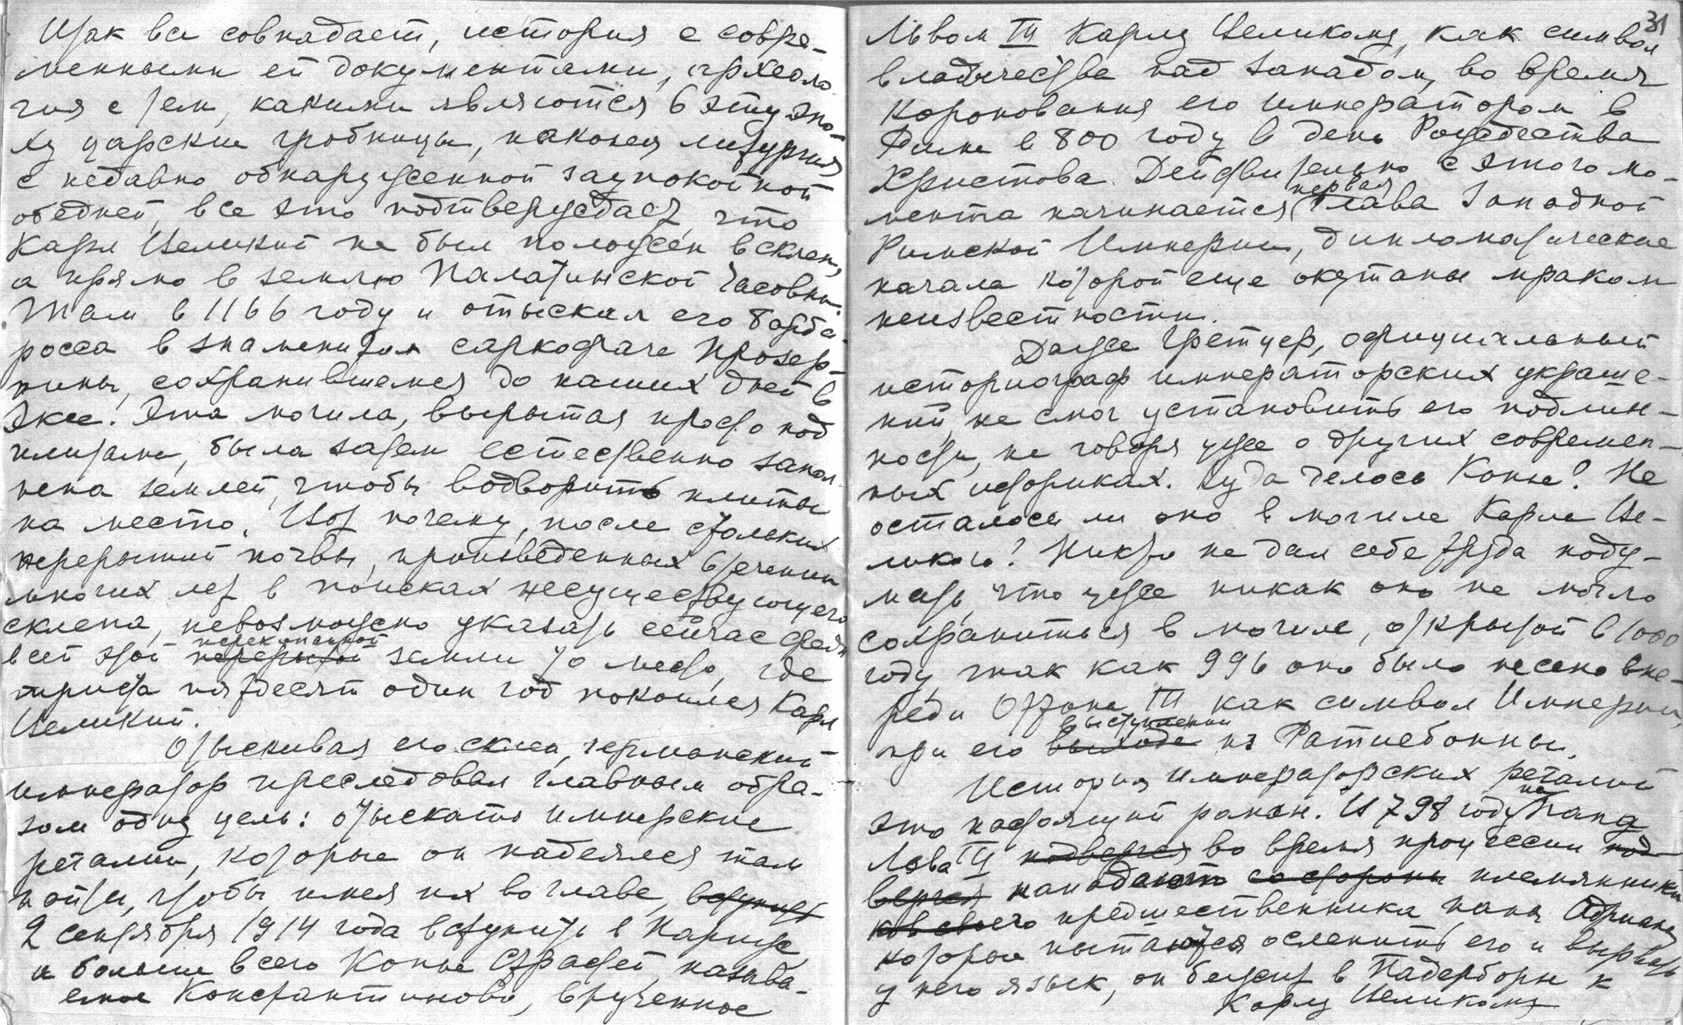 Итак все совпадает, история с совре-
менными ей документами, археоло
гия с тем, какими являются в эту эпо-
ху царские гробницы, наконец литургия
с недавно обнаруженной заупокойной
обедней, все это подтверждает, что
Карл Великий не был положен в склеп,
а прямо в землю Палатинской Часовни.
Там в 1166 году и отыскал его Барба-
росса в знаменитом саркофаге Прозер-
пины, сохранившемся до наших дней в
Эксе. Эта могила, вырытая просто под
плитами, была затем естественно запол-
нена землей, чтобы водворить плиты
на место. Вот почему, после стольких
перерытий почвы, произведенных в течении
многих лет в поисках несуществующего
склепа, невозможно указать сейчас среди
всей этой перерытой перекопанной земли то место, где
триста пятдесят один год покоился Карл
Великий.
Отыскивая его склеп, германский
император преследовал главным обра-
зом одну цель: отыскать имперские
регалии, которые он надеялся там
найти, чтобы имея их во главе, вступить
2 сентября 1914 года вступить в Париж
и больше всего Копье Страстей, называ-
емое Константиново, врученное
31
Львом III Карлу Великому, как символ
владычества над западом, во время
коронования его императором в
Риме в 800 году в день Рождества
Христова. Действительно с этого мо-
мента начинается первая глава Западной
Римской Империи, дипломатические
начала которой еще окутаны мраком
неизвестности.
Даже Гретцер, официальный
историограф императорских украше-
ний, не смог установить его подлин-
ности, не говоря уже о других современ-
ных историках. Куда делось Копье? Не
осталось ли оно в могиле Карла Ве-
ликого? Никто не дал себе труда поду-
мать, что уже никак оно не могло
сохраниться в могиле, открытой в 1000
году, так как 996 оно было несено впе-
реди Оттона III как символ Империи,
при его выходе выступлении из Ратисбонны.
История императорских регалий
это настоящий роман. В 798 году на Папу
Льва III подвергся во время процессии под
вергся нападают со стороны племянники
ков своего предшественника папы Адриана
которые пытаются ослепить его и вырвать
у него язык, он бежит в Падерборн к
Карлу Великому